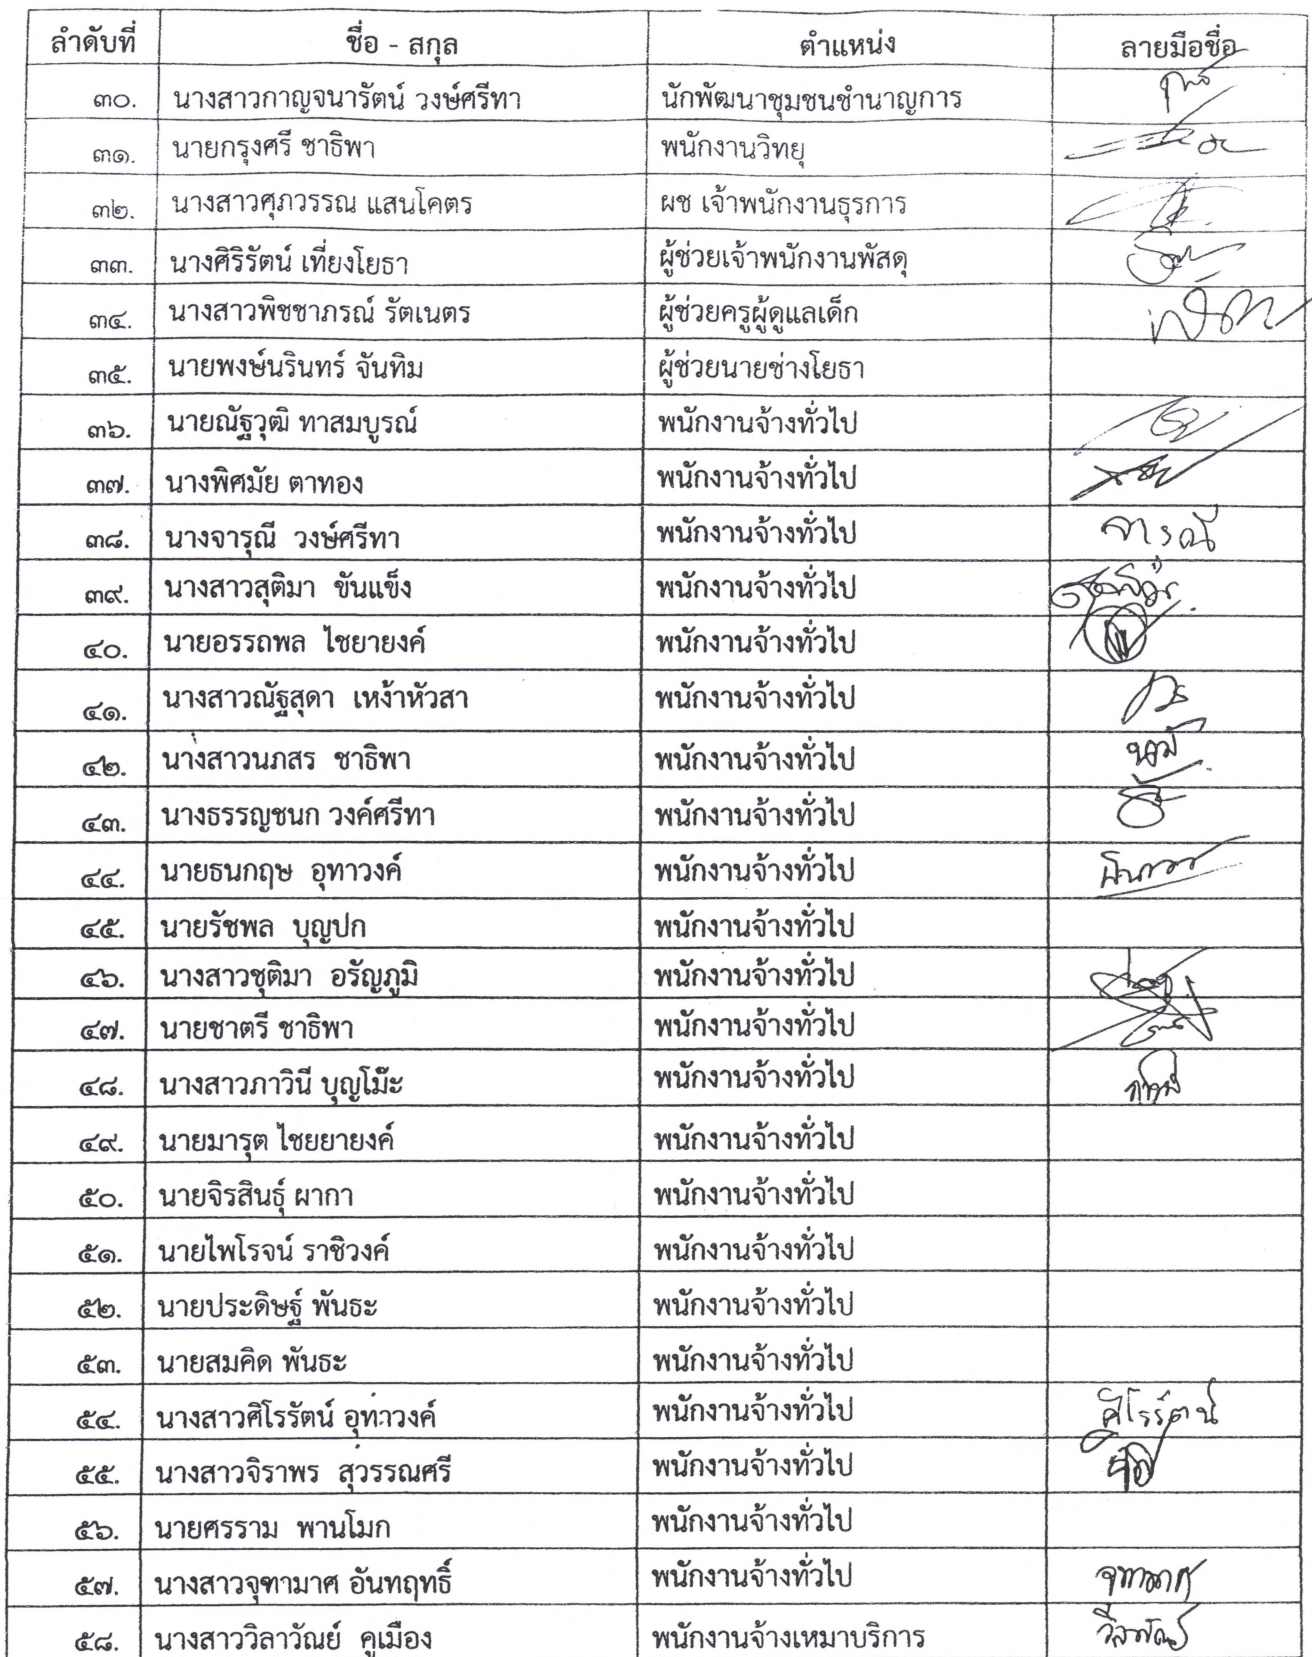 ลำดับที่ ชื่อ - สกุล ตำแหน่ง ลายมือชื่อ
๓๐. นางสาวกาญจนารัตน์ วงษ์ศรีทา นักพัฒนาชุมชนชำนาญการ
๓๑. นายกรุงศรี ชาธิพา พนักงานวิทยุ
๓๒. นางสาวศุภวรรณ แสนโคตร ผช เจ้าพนักงานธุรการ
๓๓. นางศิริรัตน์ เที่ยงโยธา ผู้ช่วยเจ้าพนักงานพัสดุ
๓๔. นางสาวพิชชาภรณ์ รัตเนตร ผู้ช่วยครูผู้ดูแลเด็ก
๓๕. นายพงษ์นรินทร์ จันทิม ผู้ช่วยนายช่างโยธา
๓๖. นายณัฐวุฒิ ทาสมบูรณ์ พนักงานจ้างทั่วไป
๓๗. นางพิศมัย ตาทอง พนักงานจ้างทั่วไป
๓๘. นางจารุณี วงษ์ศรีทา พนักงานจ้างทั่วไป จารุณี
๓๙. นางสาวสุติมา ขันแข็ง พนักงานจ้างทั่วไป
๔๐. นายอรรถพล ไชยายงค์ พนักงานจ้างทั่วไป
๔๑. นางสาวณัฐสุดา เหง้าหัวสา พนักงานจ้างทั่วไป
๔๒. นางสาวนภสร ชาธิพา พนักงานจ้างทั่วไป
๔๓. นางธรรญชนก วงค์ศรีทา พนักงานจ้างทั่วไป
๔๔. นายธนกฤษ อุทาวงค์ พนักงานจ้างทั่วไป
๔๕. นายรัชพล บุญปก พนักงานจ้างทั่วไป
๔๖. นางสาวชุติมา อรัญภูมิ พนักงานจ้างทั่วไป
๔๗. นายชาตรี ชาธิพา พนักงานจ้างทั่วไป
๔๘. นางสาวภาวินี บุญโม๊ะ พนักงานจ้างทั่วไป
๔๙. นายมารุต ไชยยายงค์ พนักงานจ้างทั่วไป
๕๐. นายจิรสินธุ์ ผากา พนักงานจ้างทั่วไป
๕๑. นายไพโรจน์ ราชิวงค์ พนักงานจ้างทั่วไป
๕๒. นายประดิษฐ์ พันธะ พนักงานจ้างทั่วไป
๕๓. นายสมคิด พันธะ พนักงานจ้างทั่วไป
๕๔. นางสาวศิโรรัตน์ อุทาวงค์ พนักงานจ้างทั่วไป ศิโรรัตน์
๕๕. นางสาวจิราพร สุวรรณศรี พนักงานจ้างทั่วไป
๕๖. นายศรราม พานโมก พนักงานจ้างทั่วไป
๕๗. นางสาวจุฑามาศ อันทฤทธิ์ พนักงานจ้างทั่วไป
๕๘. นางสาววิลาวัณย์ คูเมือง พนักงานจ้างเหมาบริการ